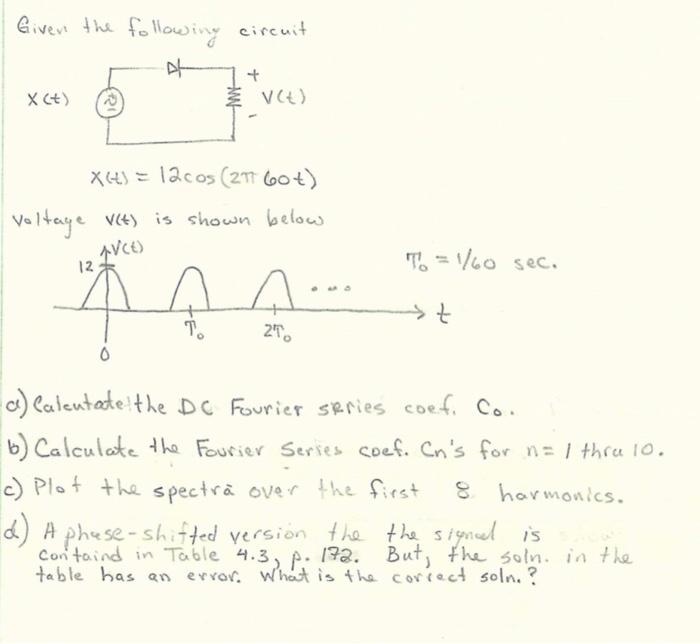 Given the following circuit
+
X(t)
V(t)
-
X(t) = 12cos(2π60t)
Voltage V(t) is shown below
V(t)
12
T₀ = 1/60 sec.
...
t
T₀
2T₀
0
a) Calcutate the DC Fourier series coef. C₀.
b) Calculate the Fourier Series coef. Cn's for n = 1 thru 10.
c) Plot the spectra over the first 8 harmonics.
d) A phase-shifted version the the signal is
containd in Table 4.3, p. 172. But, the soln. in the
table has an error. What is the correct soln.?